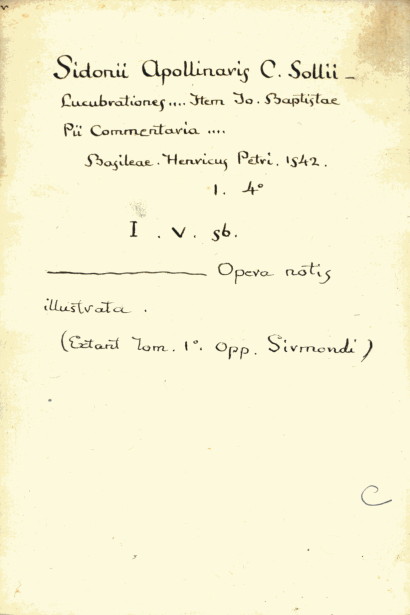 Sidonii Apollinaris C. Sollii -
Lucubrationes .... Item Jo. Baptistae
Pii Commentaria ....
Basileae. Henricus Petri. 1542.
1. 4º
I. V. 56.
Opera notis
illustrata.
(Extant Tom. 1º. Opp. Sirmondi)
C